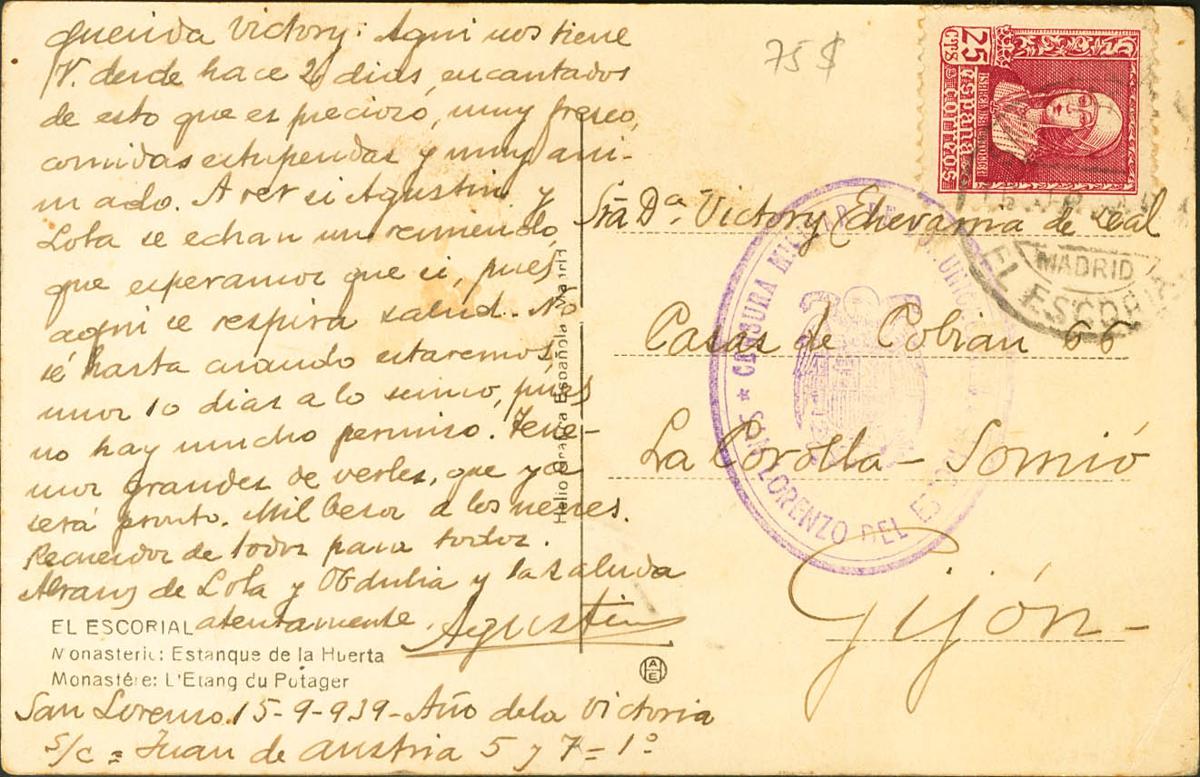 Querida Victory: Aqui nos tiene
V. desde hace 2 dias, encantados
de esto que es precioso, muy fresco,
comidas estupendas y muy ani-
mado. A ver si Agustin y
Lola se echan un remiendo,
que esperamos que si, pues
aqui se respira salud. No
sé hasta cuando estaremos
unos 10 dias a lo sumo, pués
no hay mucho permiso. Tene-
mos grandes de verles, que ya
será pronto. Mil besos a los nenes.
Recuerdos de todos para todos.
Abrazos de Lola y Obdulia y la saluda
atentamente. Agustin
EL ESCORIAL
Monasterio: Estanque de la Huerta
Monastére: L'Etang du Potager
San Lorenzo 15-9-939 - Año de la Victoria
S/c = Juan de Austria 5 y 7 = 1º
Heliotipia Española Madrid
A E
75 $
25 CTS
España
CORREOS
MADRID
EL ESCORIAL
Sra Dª. Victory Echevarria de Leal
Casas de Cobian 66
La Corolla - Somió
Gijón -
★ CENSURA MILITAR
SAN LORENZO DEL ESCORIAL